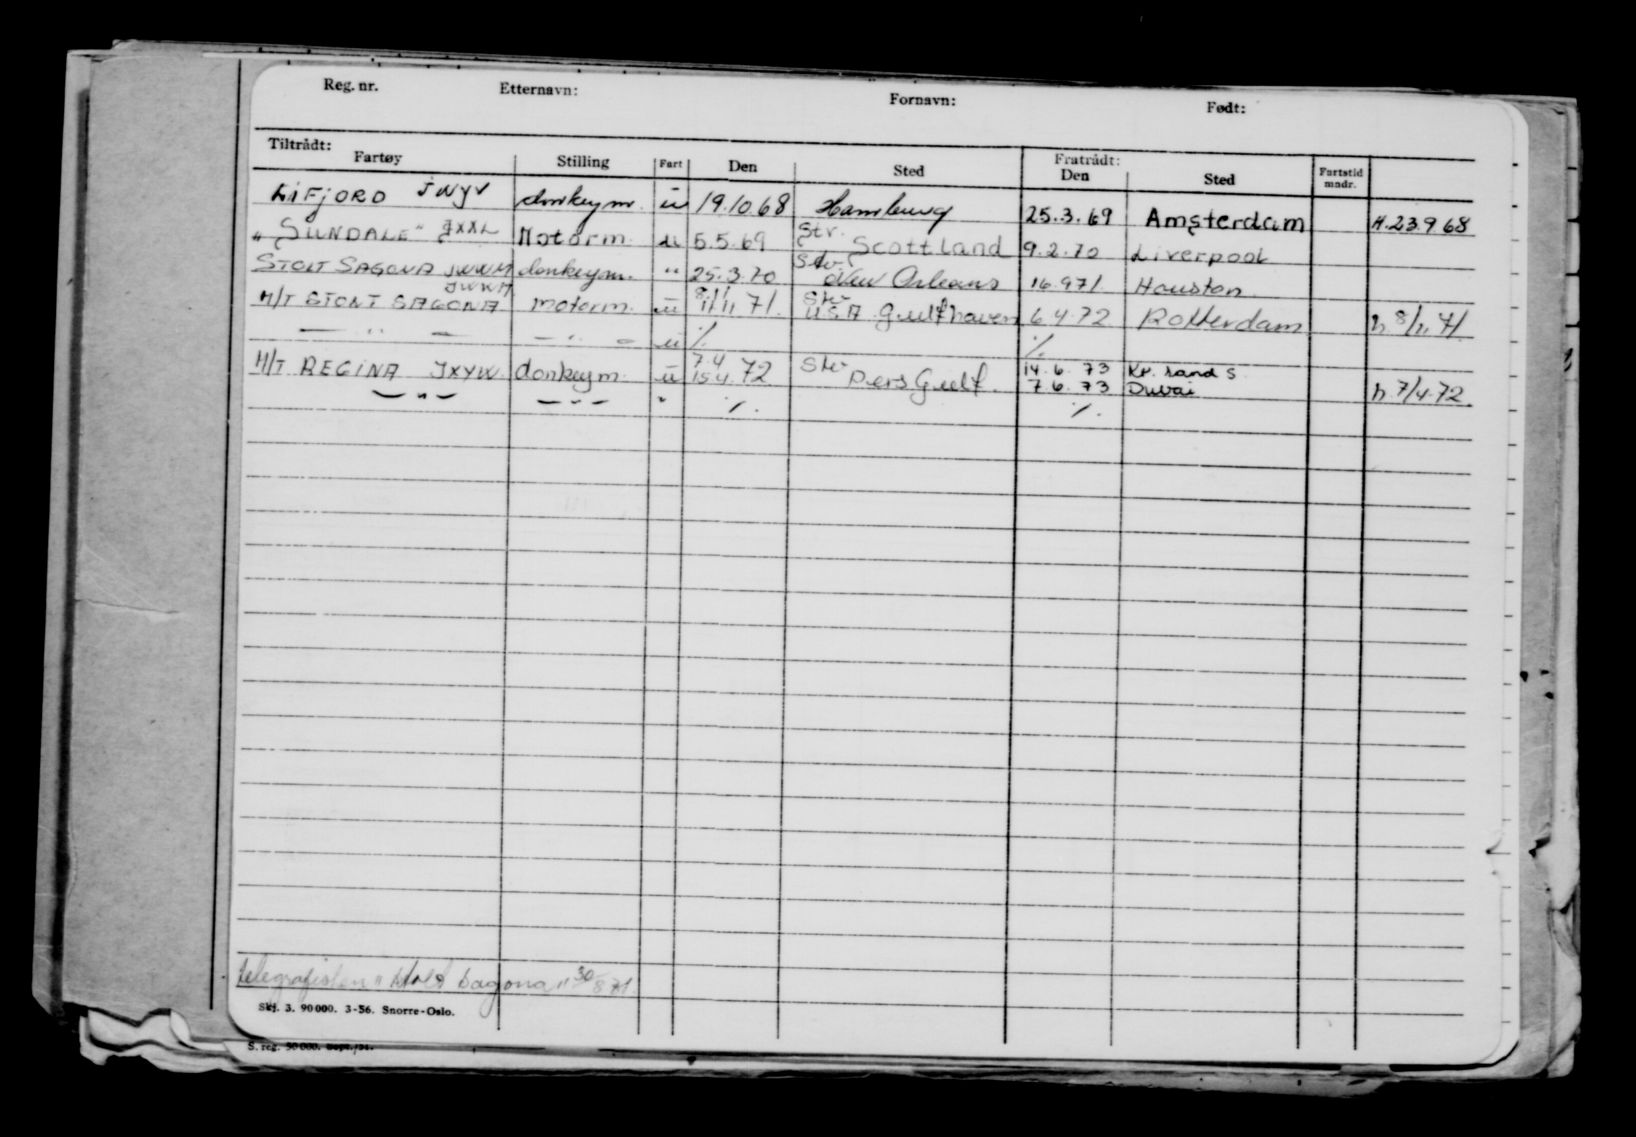 Reg. nr. Etternavn: Fornavn: Født:
Tiltrådt: Fratrådt:
Fartøy Stilling Fart Den Sted Den Sted Fartstid mndr.
LiFjORD JWYV donkeym. u 19.10.68 Hamburg 25.3.69 Amsterdam H.23.9.68
"SUNDALE" JXXL Motorm. u 5.5.69 Str. Scottland 9.2.70 Liverpool
STOLT SAGONA JWWM donkeym. " 25.3.70 Str. New Orleans 16.9.71 Houston
M/T STOLT SAGONA JWWM motorm. u 8/11 11/11 71. Str U.S.A Gulfhaven 6.4.72 Rotterdam h 8/11 71.
— " — — " — u % %
M/T REGINA JXYW donkeym. u 7.4 15.4.72 Str Pers Gulf. 14.6.73 Kr. sand S 7.6.73 Dubai h 7/4.72
— " — — " — " %. %.
telegrafisten "Stolt Sagona" 30/8 71
Skj. 3. 90 000. 3-56. Snorre-Oslo.
S. reg. 50 000. Sept./51.